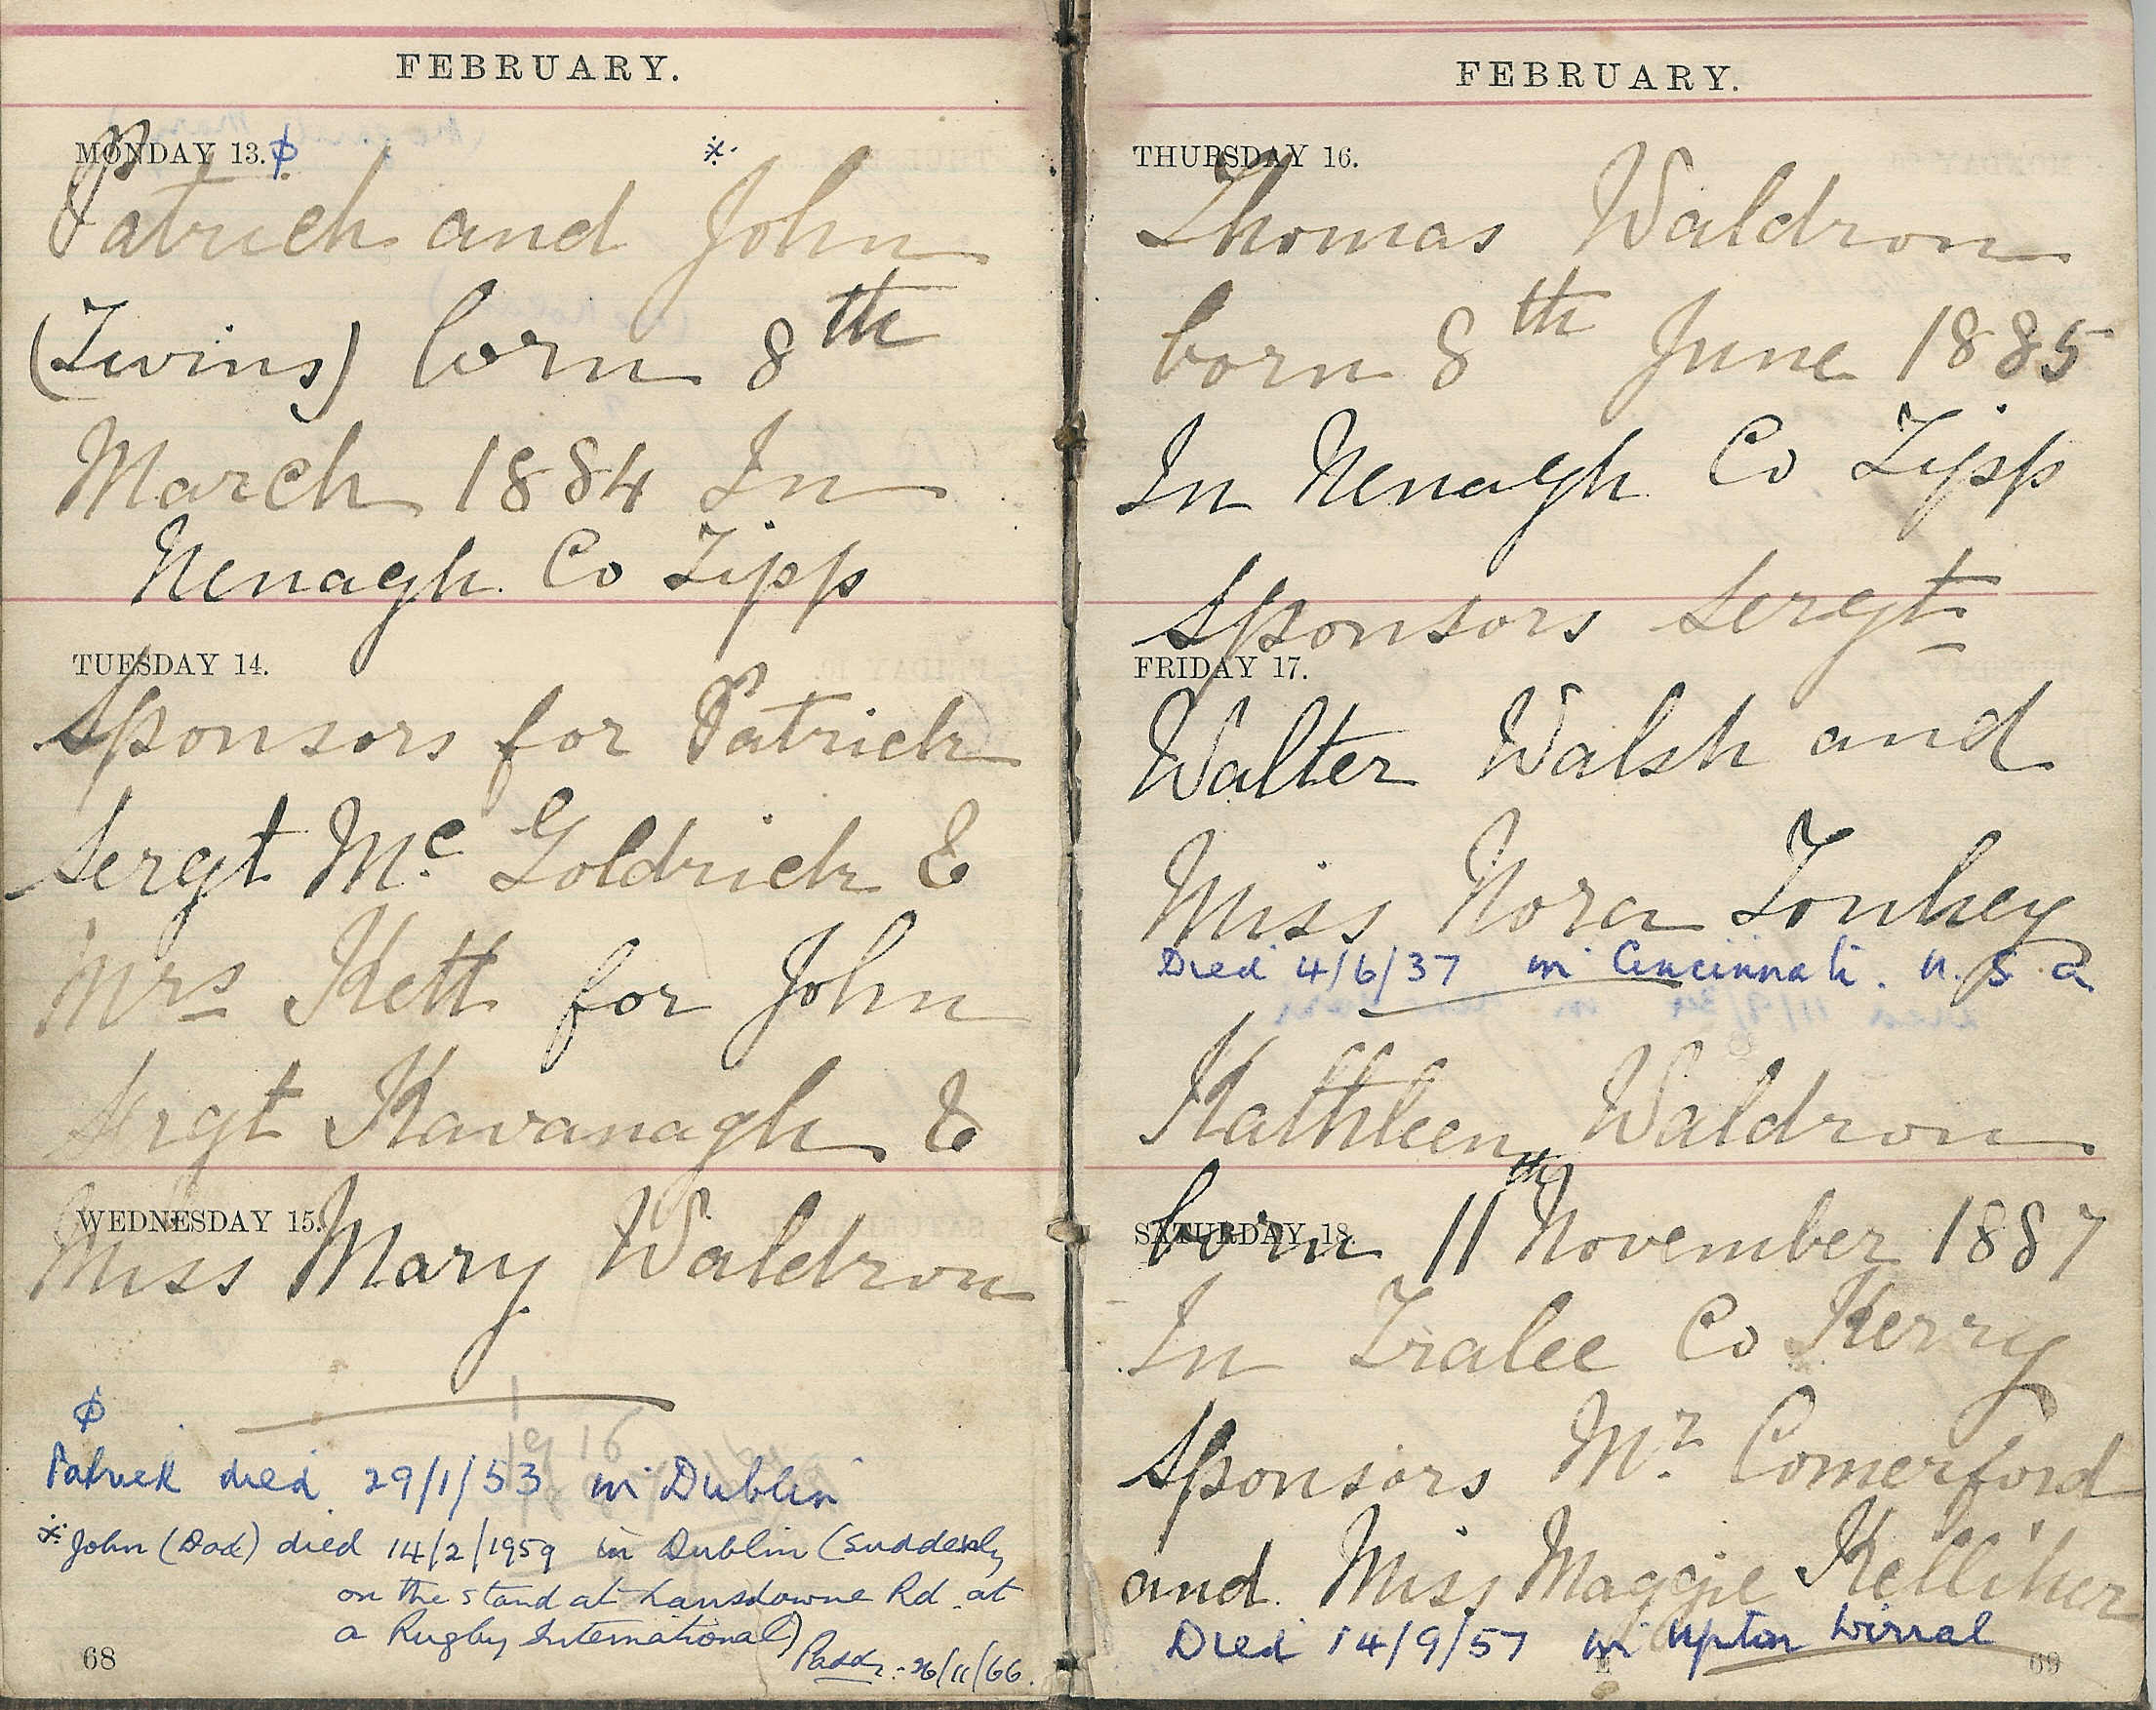 FEBRUARY.
MONDAY 13. ϕ ※
Patrick and John
(Twins) born 8th
March 1884 In
Nenagh Co Tipp
TUESDAY 14.
Sponsors for Patrick
Sergt Mc Goldrick &
Mrs Kett for John
Sergt Kavanagh &
WEDNESDAY 15.
Miss Mary Waldron
ϕ
Patrick died 29/1/53 in Dublin
※ John (Dad) died 14/2/1959 in Dublin (suddenly
on the stand at Lansdowne Rd. at
a Rugby International)
Paddy. 26/11/66.
68
FEBRUARY.
THURSDAY 16.
Thomas Waldron
born 8th June 1885
In Nenagh Co Tipp
Sponsors Sergt
FRIDAY 17.
Walter Walsh and
Miss Nora Touhey
Died 4/6/37 in Cincinnati. U.S.A
Kathleen Waldron
SATURDAY 18.
born 11th November 1887
In Tralee Co Kerry
Sponsors Mr Comerford
and Miss Maggie Kelliher
Died 14/9/57 in Upton Wirral
69